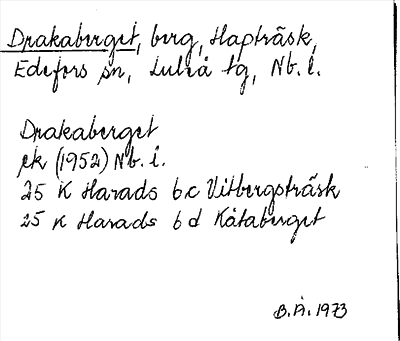 Drakaberget, berg, Hapträsk,
Edefors sn, Luleå tg, Nb. l.
Drakaberget
ek (1952) Nb. l.
25 K Harads 6c Vitbergsträsk
25 K Harads 6d Kåtaberget
B.Å. 1973